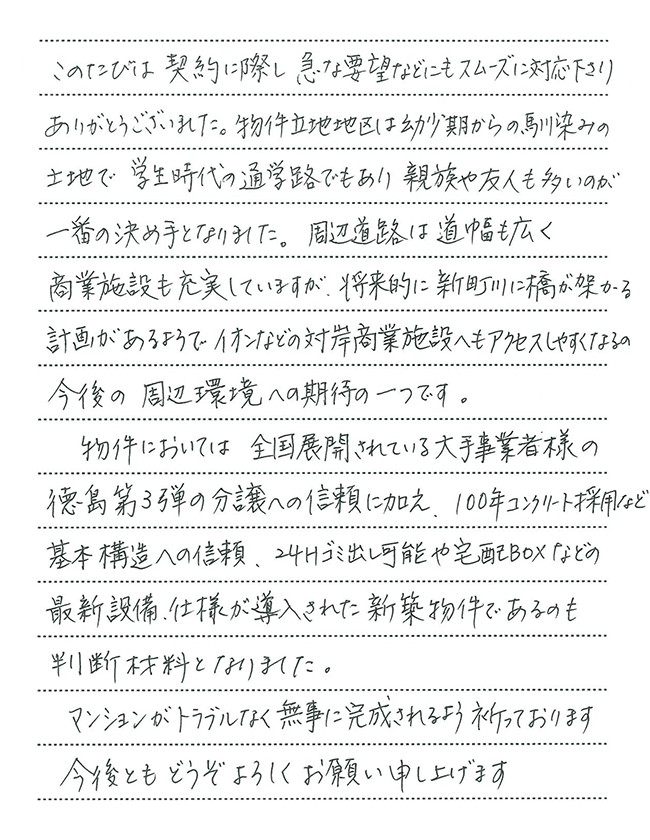 このたびは 契約に際し 急な要望などにもスムーズに対応下さり
ありがとうございました。物件立地地区は幼少期からの馴染みの
土地で 学生時代の通学路でもあり 親族や友人も多いのが
一番の決め手となりました。 周辺道路は 道幅も広く
商業施設も充実していますが、将来的に新町川に橋が架かる
計画があるようで イオンなどの対岸商業施設へもアクセスしやすくなるの
今後の 周辺環境への期待の一つです。
物件においては 全国展開されている大手事業者様の
徳島第3弾の分譲への信頼に加え、100年コンクリート採用など
基本構造への信頼、24Hゴミ出し可能や宅配BOXなどの
最新設備、仕様が導入された新築物件であるのも
判断材料となりました。
マンションがトラブルなく無事に完成されるよう祈っております
今後とも どうぞよろしくお願い申し上げます